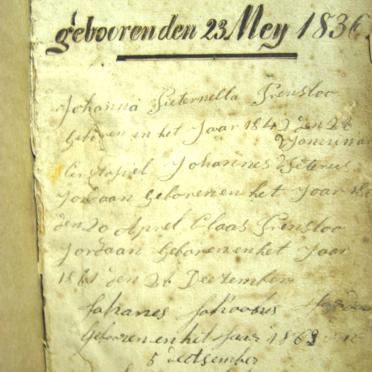 geboorenden 23 Mey 1836
Johanna Pieternella Prinsloo
geboren en het Jaar 184 den 28
Johannes
Jordaan Geboren en het Jaar
den 20 Aprel Claas Prinsloo
Jordaan Geboren en het Jaar
den 26 Dectember
Johanes
Geboren en het Jaar 1863
5 dedsember